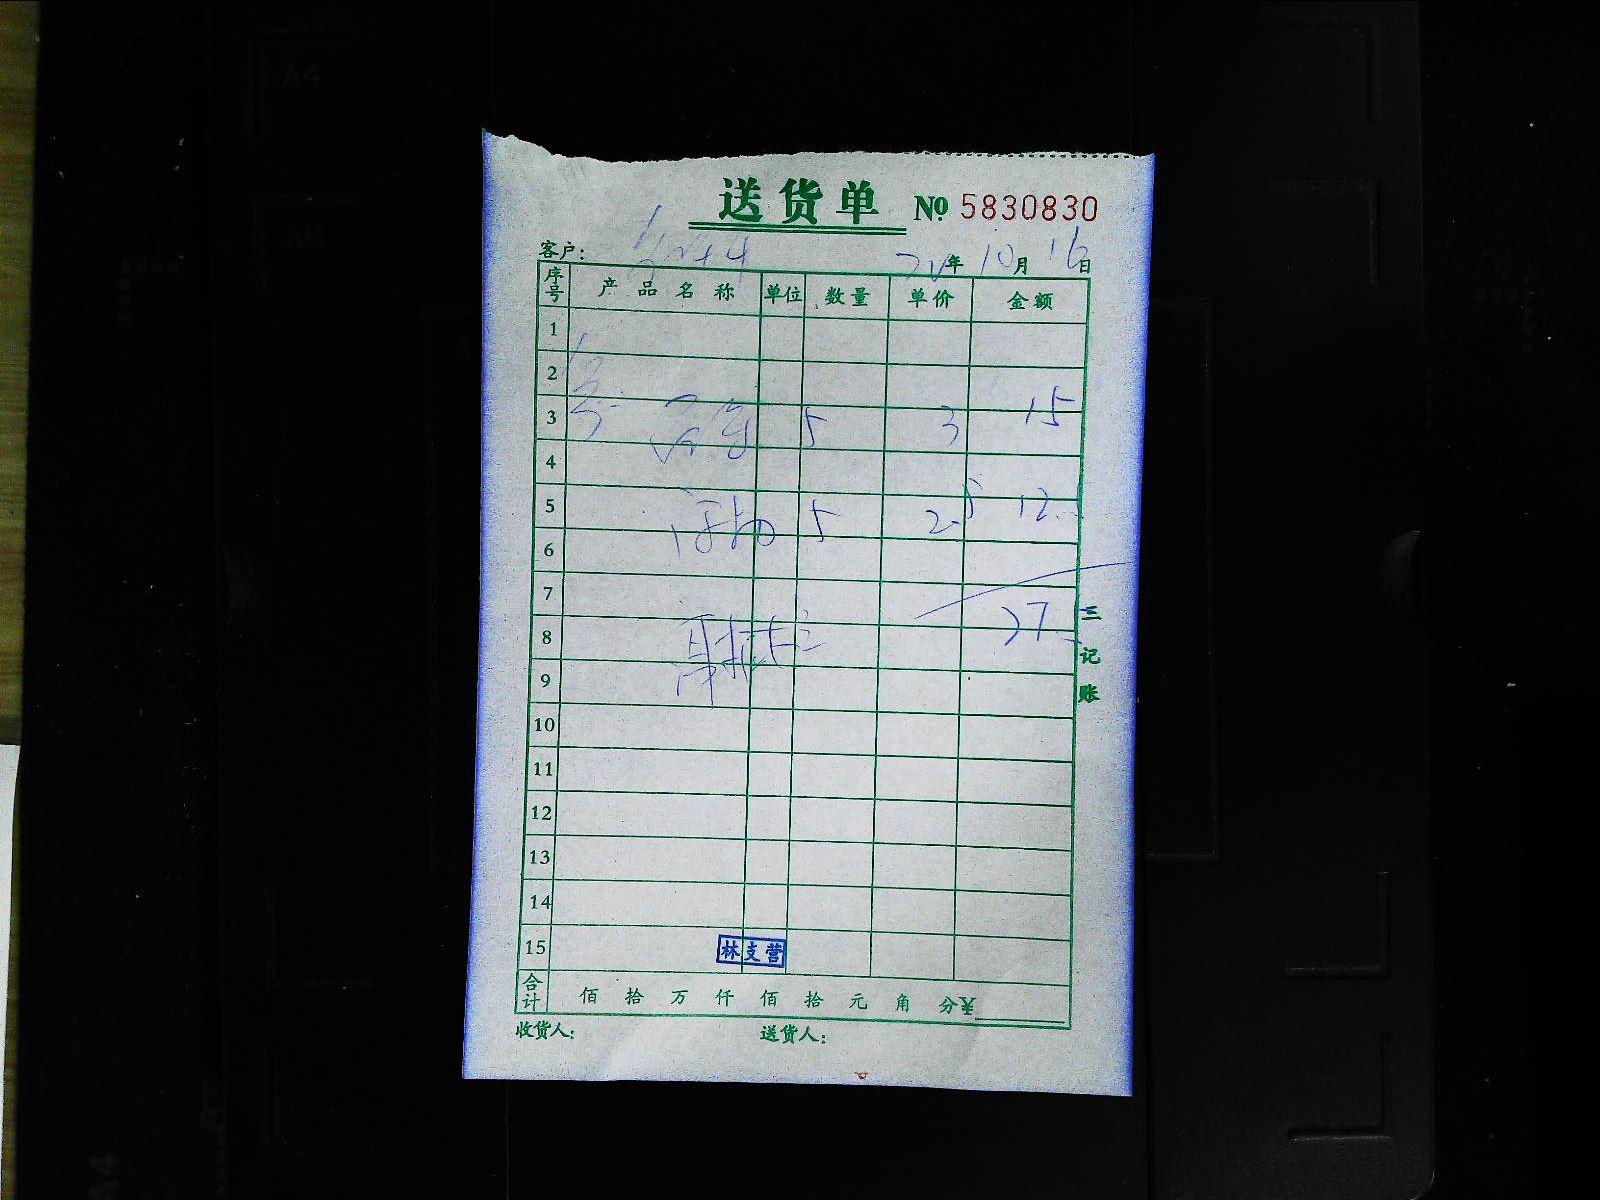 送货单 No 5830830
客户: 20年10月16日
序号 产品名称 单位 数量 单价 金额
1
2
3 5 3 15
4
5 5 2.5 12.5
6
7
27.
8
9
10
11
12
13
14
15 林支营
合计 佰 拾 万 仟 佰 拾 元 角 分 ¥
收货人: 送货人:
三记账